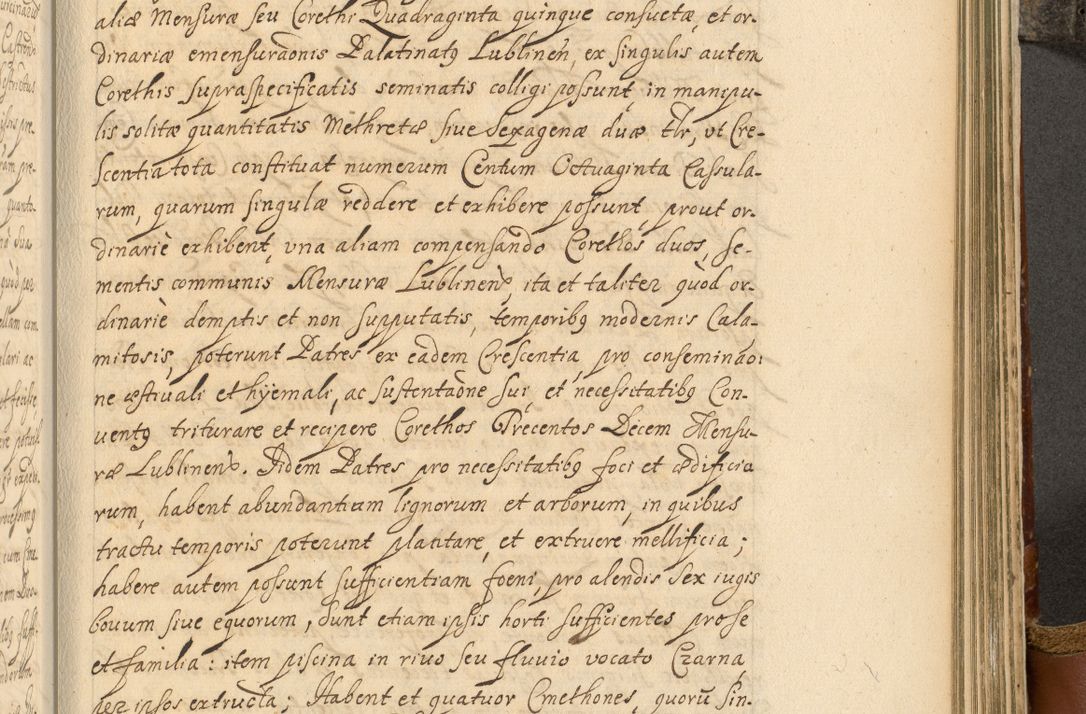 aliæ Mensuræ seu Corethi Quadraginta quinque consuetæ, et or-
dinariæ emensuraõnis Palatinatꝯ Lublinen̄, ex singulis autem
Corethis supraspecificatis seminatis colligi possunt, in manipu-
lis solitæ quantitatis Methretæ siue Sexagenæ duæ tlr, vt Cre-
scentia tota constituat numerum Centum Octuaginta Cassula-
rum, quarum singulæ reddere et exhibere possunt, prout or-
dinariè exhibent, vna aliam compensando Corethos duos, se-
mentis communis Mensuræ Lublinen̄, ita et taliter quòd or-
dinariè demptis et non supputatis, temporibꝯ modernis Cala-
mitosis, poterunt Patres ex eadem Crescentia, pro conseminaõ-
ne æstiuali et hÿemali, ac sustentaõne sui, et necessitatibꝯ Con-
uentꝯ triturare et recipere Corethos Trecentos Decem Mensu-
ræ Lublinen̄. Iidem Patres pro necessitatibꝯ foci et ædificia
rum, habent abundantiam lignorum et arborum, in quibus
tractu temporis poterunt platitare, et extruere mellificia;
habere autem possunt sufficientiam foeni, pro alendis sex iugis
bouum siue equorum, sunt etiam ipsis horti sufficientes pro se
et familia: item piscina in riuo seu fluuio vocato Czarna
per ipsos extructa; Habent et quatuor Cmethones, quorū sin-